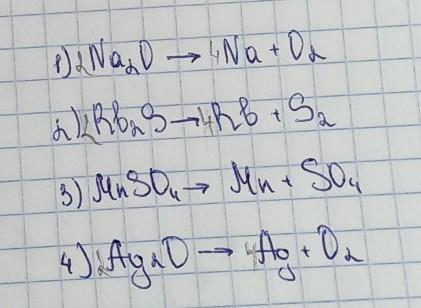 1) 2Na₂O → 4Na + O₂
2) 2Rb₂S → 4Rb + S₂
3) MnSO₄ → Mn + SO₄
4) 2Ag₂O → 4Ag + O₂